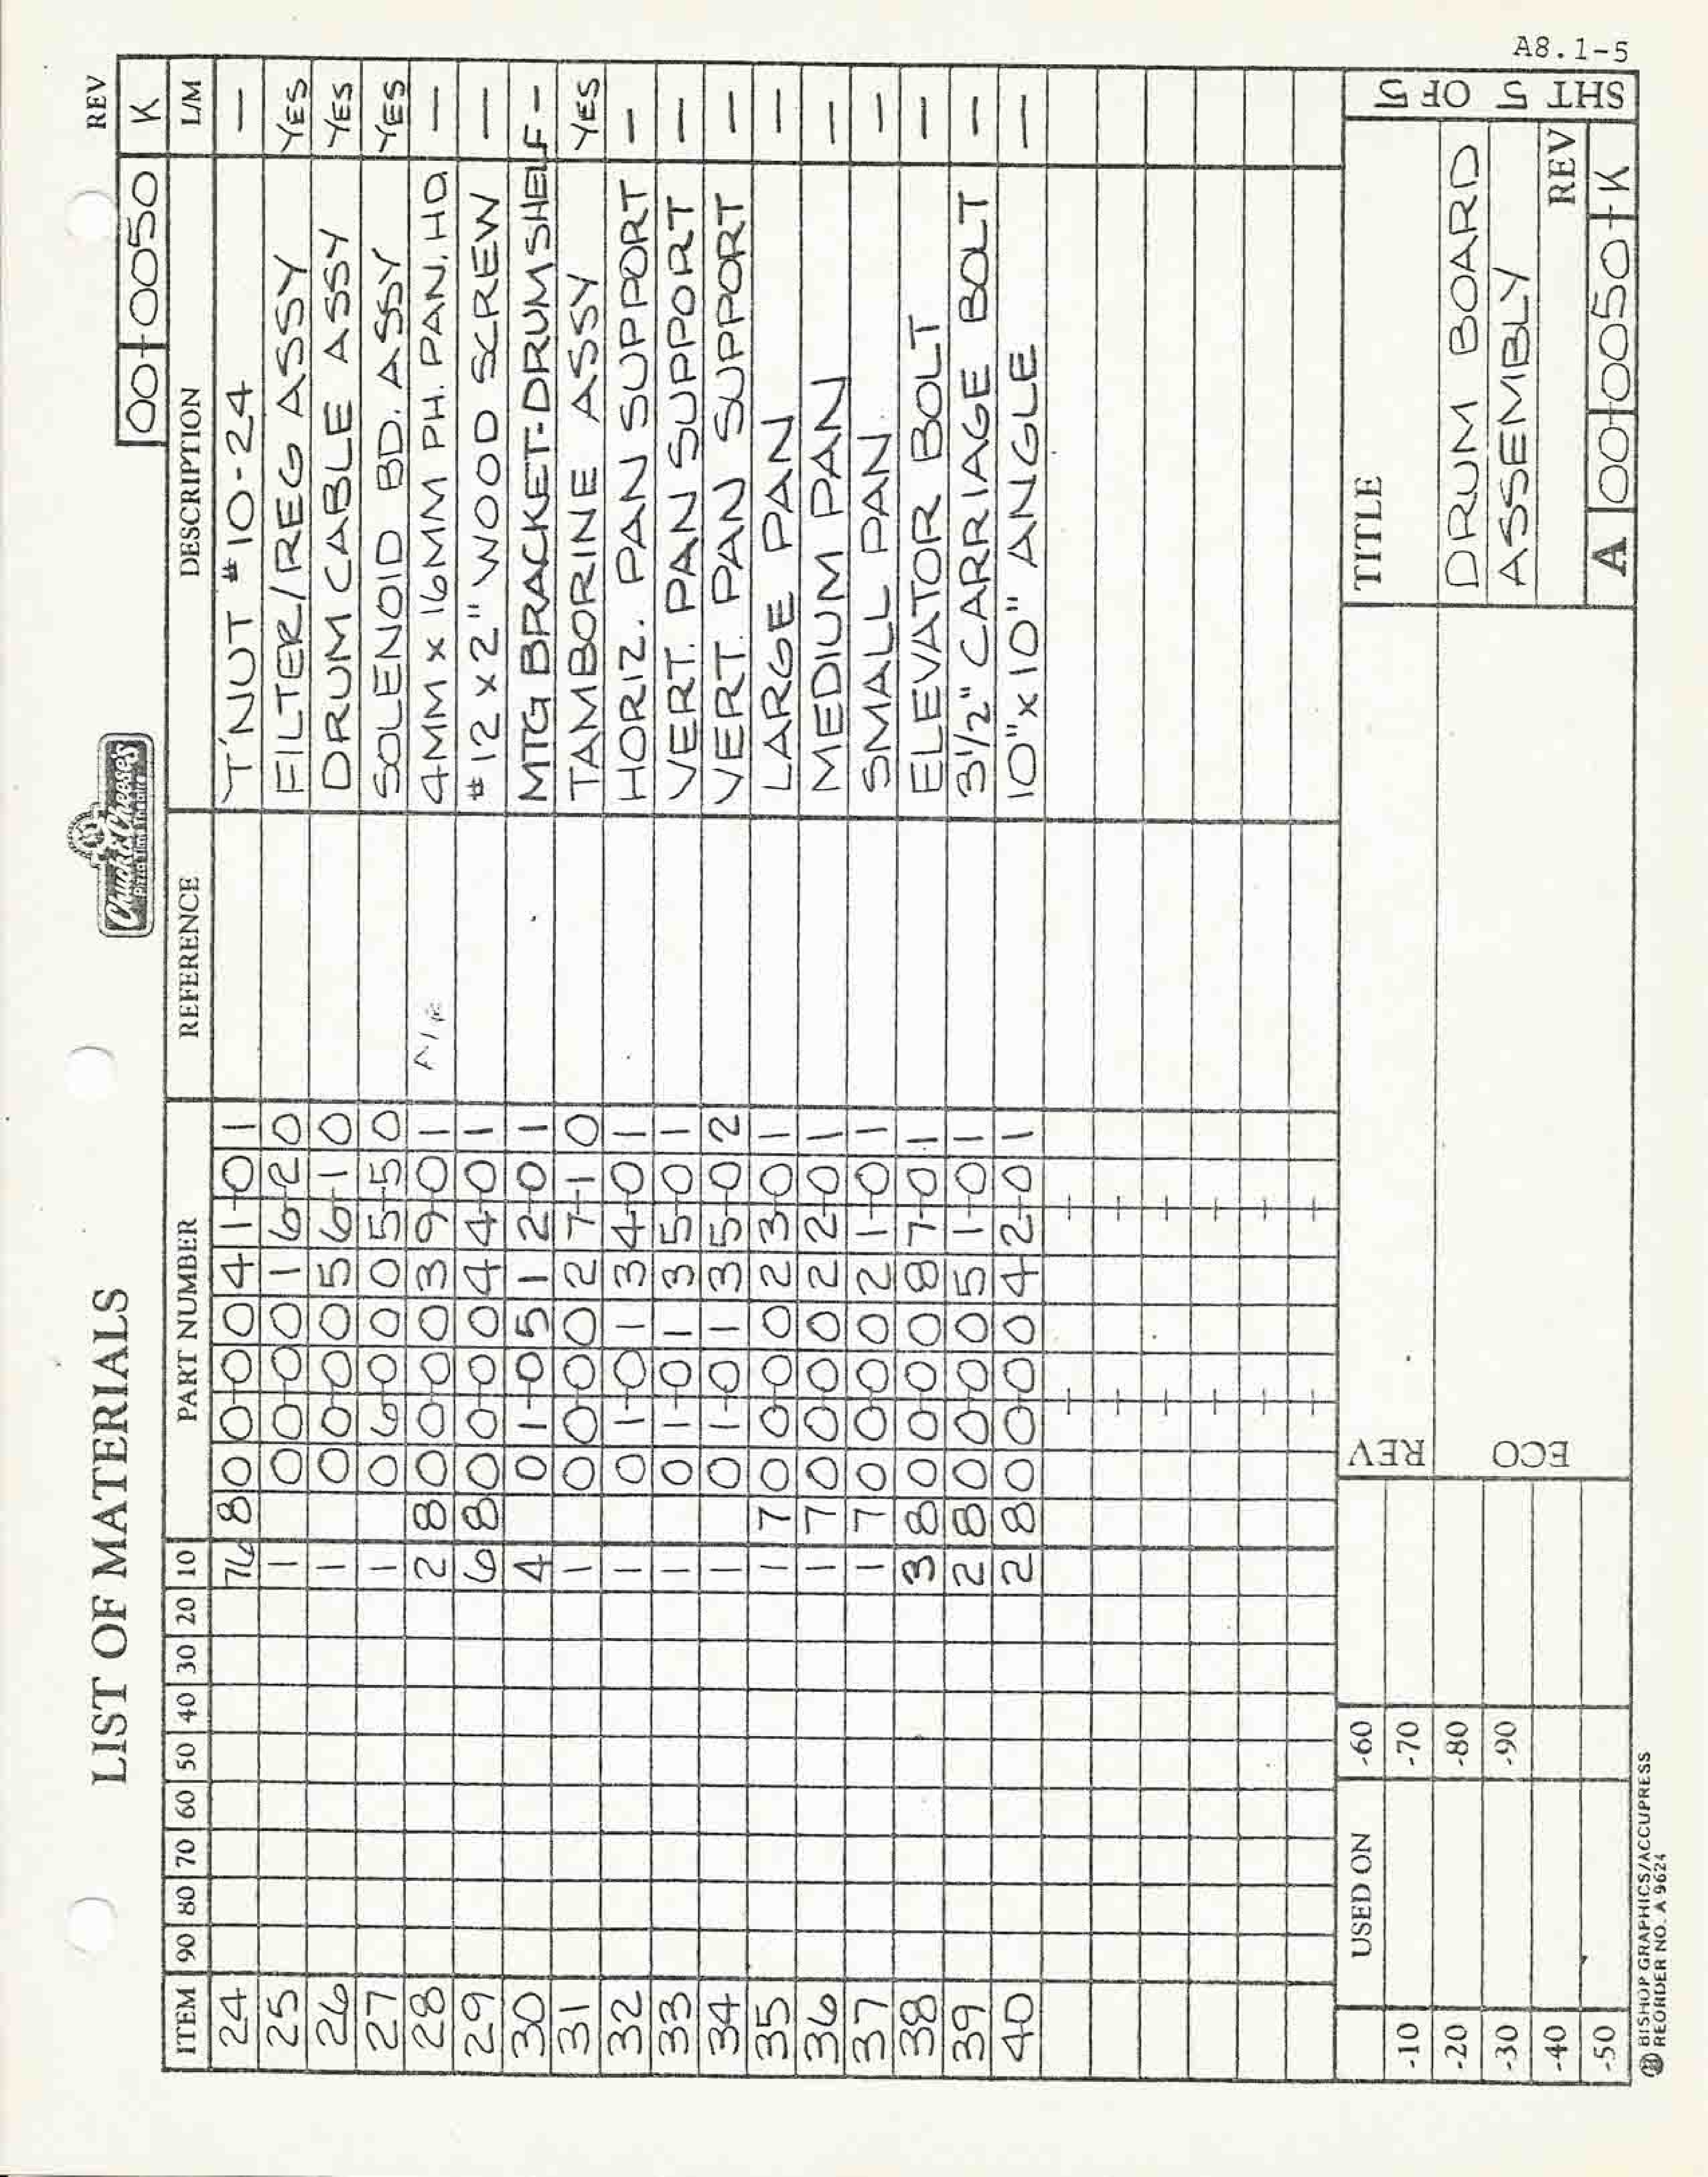 LIST OF MATERIALS
Chuck E. Cheese's
Pizza Time Theatre
REV
00-0050 K
ITEM 90 80 70 60 50 40 30 20 10 PART NUMBER REFERENCE DESCRIPTION L/M
24 76 800-0041-01 T'NUT #10-24 —
25 1 00-0016-20 FILTER/REG ASSY YES
26 1 00-0056-10 DRUM CABLE ASSY YES
27 1 06-0005-50 SOLENOID BD. ASSY YES
28 2 800-0039-01 4MM x 16MM PH. PAN. HD. —
29 6 800-0044-01 #12 x 2" WOOD SCREW —
30 4 01-0512-01 MTG BRACKET-DRUM SHELF —
31 1 00-0027-10 TAMBORINE ASSY YES
32 1 01-0134-01 HORIZ. PAN SUPPORT —
33 1 01-0135-01 VERT. PAN SUPPORT —
34 1 01-0135-02 VERT. PAN SUPPORT —
35 1 700-0023-01 LARGE PAN —
36 1 700-0022-01 MEDIUM PAN —
37 1 700-0021-01 SMALL PAN —
38 3 800-0087-01 ELEVATOR BOLT —
39 2 800-0051-01 3 1/2" CARRIAGE BOLT —
40 2 800-0042-01 10" x 10" ANGLE —
USED ON -60 REV TITLE
-10 -70
-20 -80 DRUM BOARD
-30 -90 ECO ASSEMBLY
-40 REV
-50 A 00-0050-K
SHT 5 OF 5
BISHOP GRAPHICS/ACCUPRESS
REORDER NO. A 9624
A8.1-5